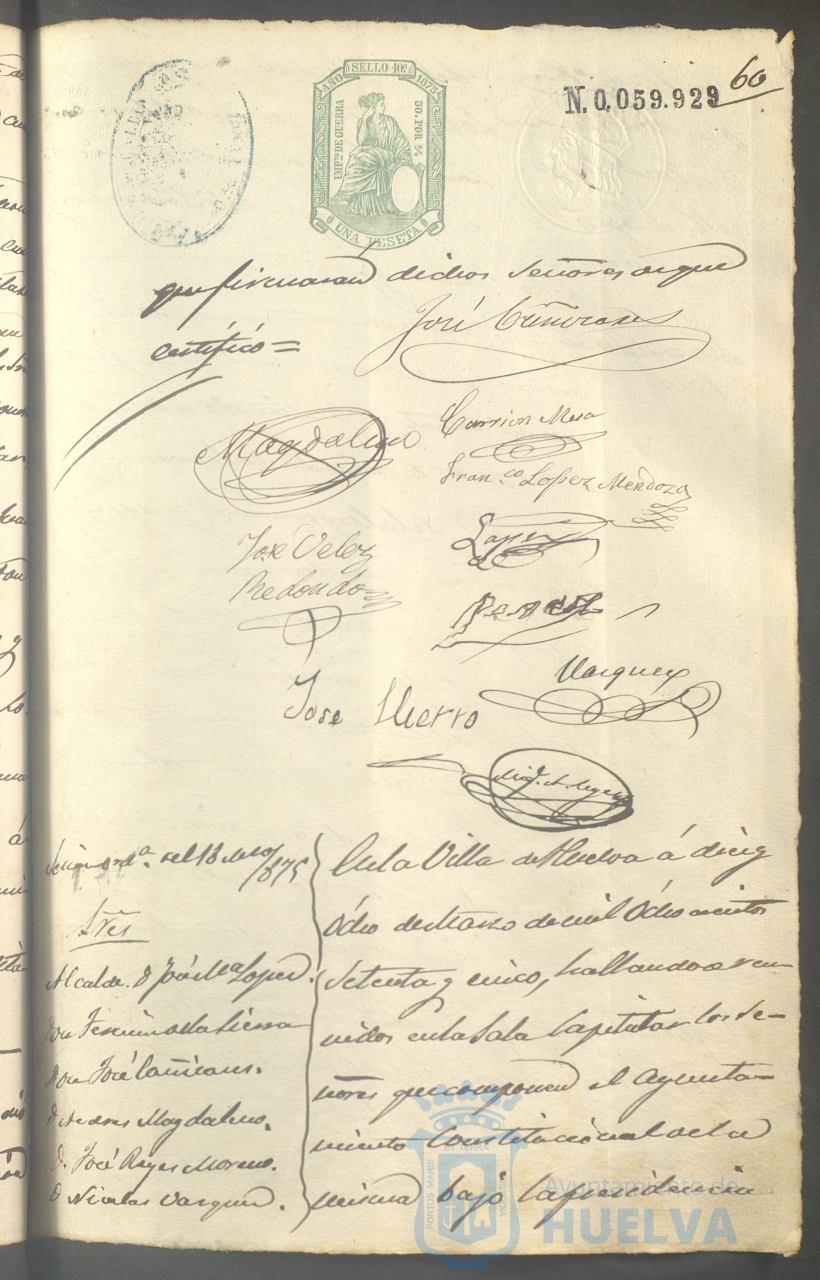 60
N. 0,059.929
AÑO SELLO 10º 1875
IMPTO DE GUERRA
50. POR %
UNA PESETA
que firmaran dichos Señores de que
certifico=
José
Magdaleno
Carrion Mesa
Franco Lopez Mendoza
José Velez
Redondo
Lopez
Vazquez
Jose Hierro
Sesion ordª. del 18 Marzo/875
Sres
Alcalde. D José Mª Lopez.
Don Fermin de la Sierra
Don José Cañizares.
D. Andres Magdaleno.
D. José Reyes Moreno.
D Nicolas Vazquez.
En la Villa de Huelva á diez y
Ocho de Marzo de mil Ochocientos
Setenta y cinco, hallandose reu-
nidos en la Sala Capitular los Se-
ñores que componen el Ayunta-
miento Constitucional de la
misma bajo la presidencia
PORTUS MARIS
ET TERRAE
Ayuntamiento de
HUELVA